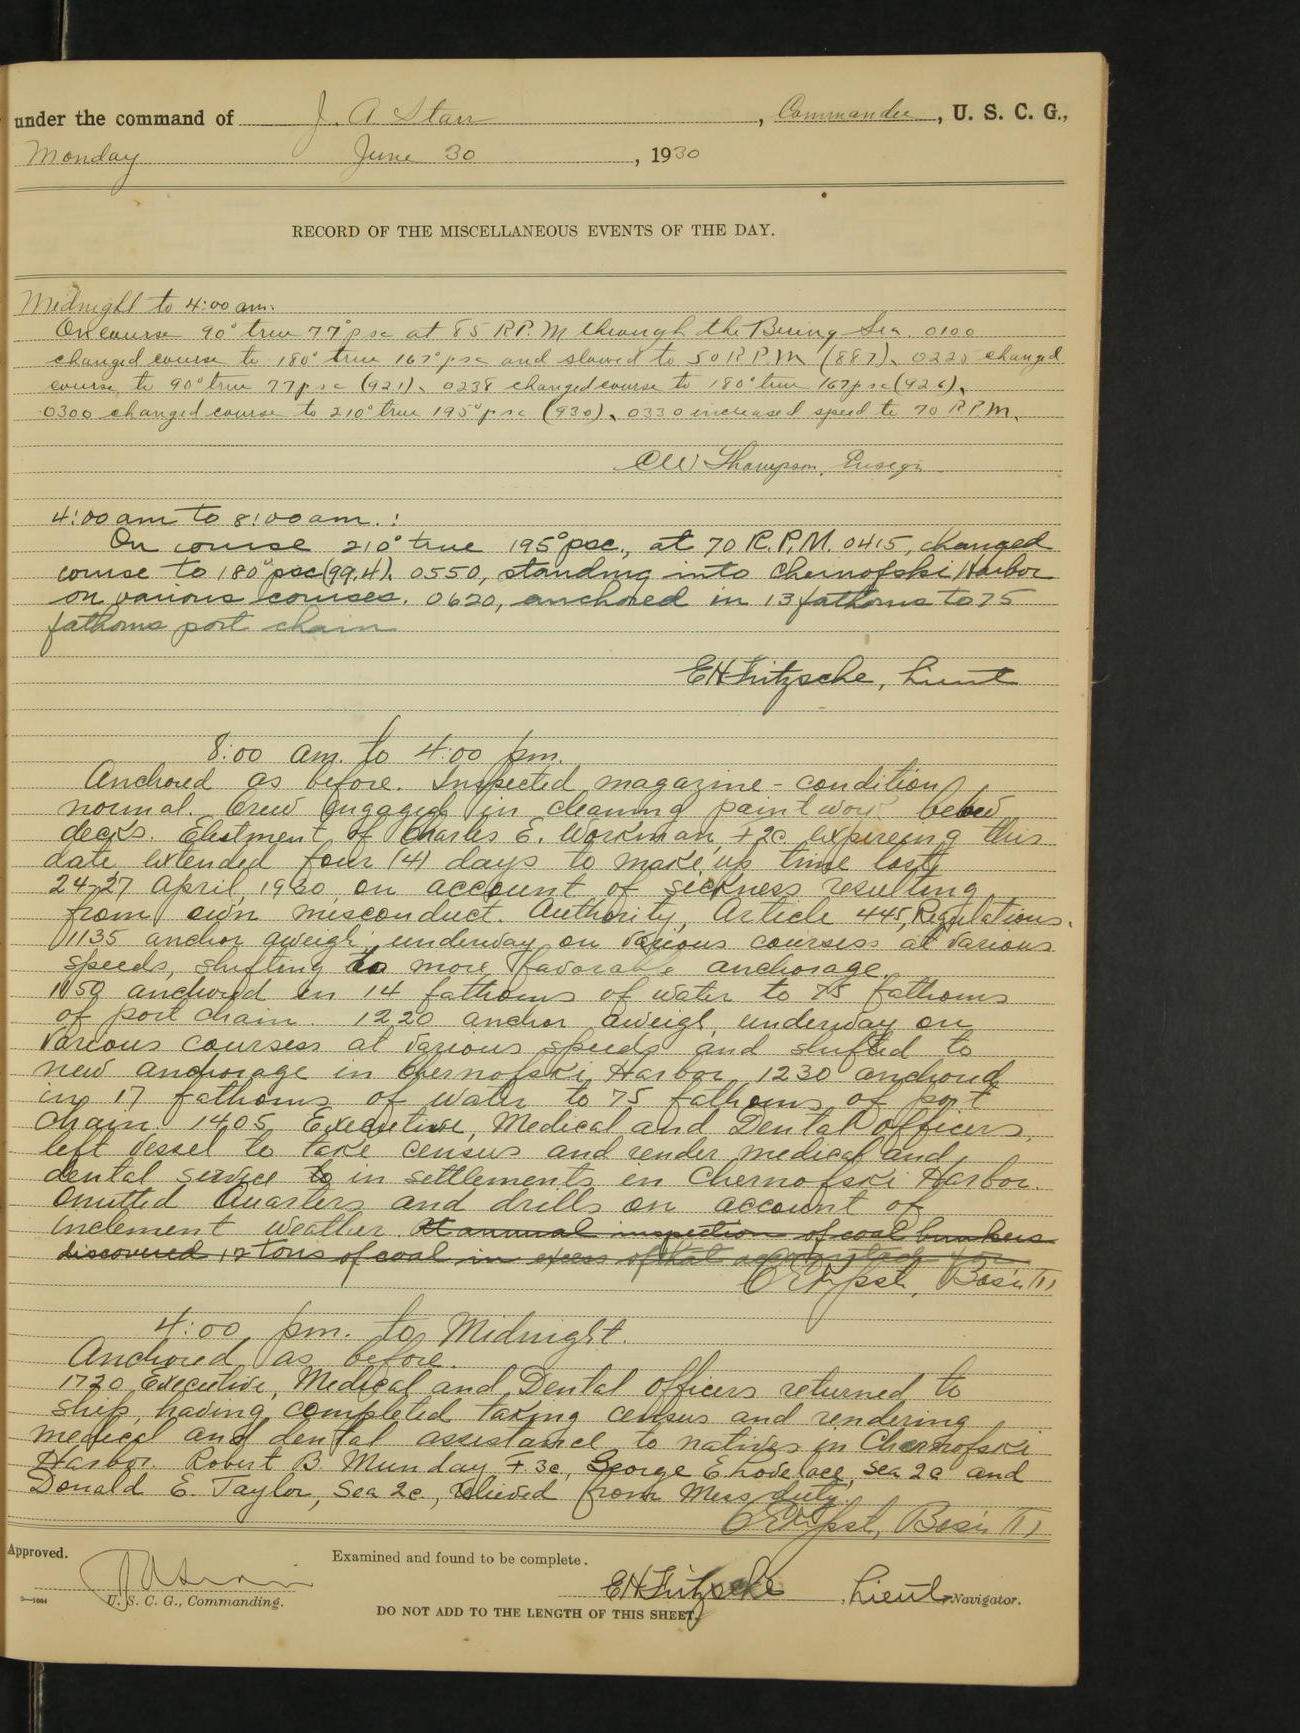 under the command of J. A. Starr, Commander, U. S. C. G.,
Monday June 30, 1930
RECORD OF THE MISCELLANEOUS EVENTS OF THE DAY.
Midnight to 4:00 am.
On course 90° true 77° psc at 85 R.P.M through the Bering Sea. 0100
changed course to 180° true 167° psc and slowed to 50 R.P.M (887). 0225 changed
course to 90° true 77 psc (921). 0238 changed course to 180° true 167 psc (926).
0300 changed course to 210° true 195° psc (930). 0330 increased speed to 70 R.P.M.
C W Thompson, Ensign
4:00 am to 8:00 am. :
On course 210° true 195° psc., at 70 R.P.M. 0415, changed
course to 180° psc (99.4). 0550, standing into Chernofski Harbor
on various courses. 0620, anchored in 13 fathoms to 75
fathoms port chain
E H Fritzsche, Lieut
8:00 am. to 4:00 pm.
Anchored as before. Inspected magazine - condition
normal. Crew engaged in cleaning paintwork below
decks. Elistment of Charles E. Workman, F2c expireing this
date extended four (4) days to make up time lost
24-27 April, 1930 on account of sickness resulting
from own misconduct. Authority, Article 445, Regulations.
1135 anchor aweigh, underway on various courses at various
speeds, shifting to more favorable anchorage.
1150 anchored in 14 fathoms of water to 75 fathoms
of port chain. 1220 anchor aweigh, underway on
various courses at various speeds and shifted to
new anchorage in Chernofski Harbor 1230 anchored
in 17 fathoms of water to 75 fathoms of port
chain. 1405 Executive, Medical and Dental officers,
left vessel to take census and render medical and
dental service to in settlements in Chernofski Harbor.
Omitted Quarters and drills on account of
inclement weather. At annual inspection of coal bunkers
discovered 12 tons of coal in excess of that
Bos'n (T)
4:00 pm. to Midnight.
Anchored as before.
1720 Executive, Medical and Dental officers returned to
ship, having completed taking census and rendering
medical and dental assistance to natives in Chernofski
Harbor. Robert B. Munday F. 3c, George E Lovelace, Sea 2c and
Donald E. Taylor, Sea 2c., relieved from Mess duty.
Bos'n (T)
Approved.
Examined and found to be complete.
J A Starr
E H Fritzsche, Lieut, Navigator.
U. S. C. G., Commanding.
DO NOT ADD TO THE LENGTH OF THIS SHEET.